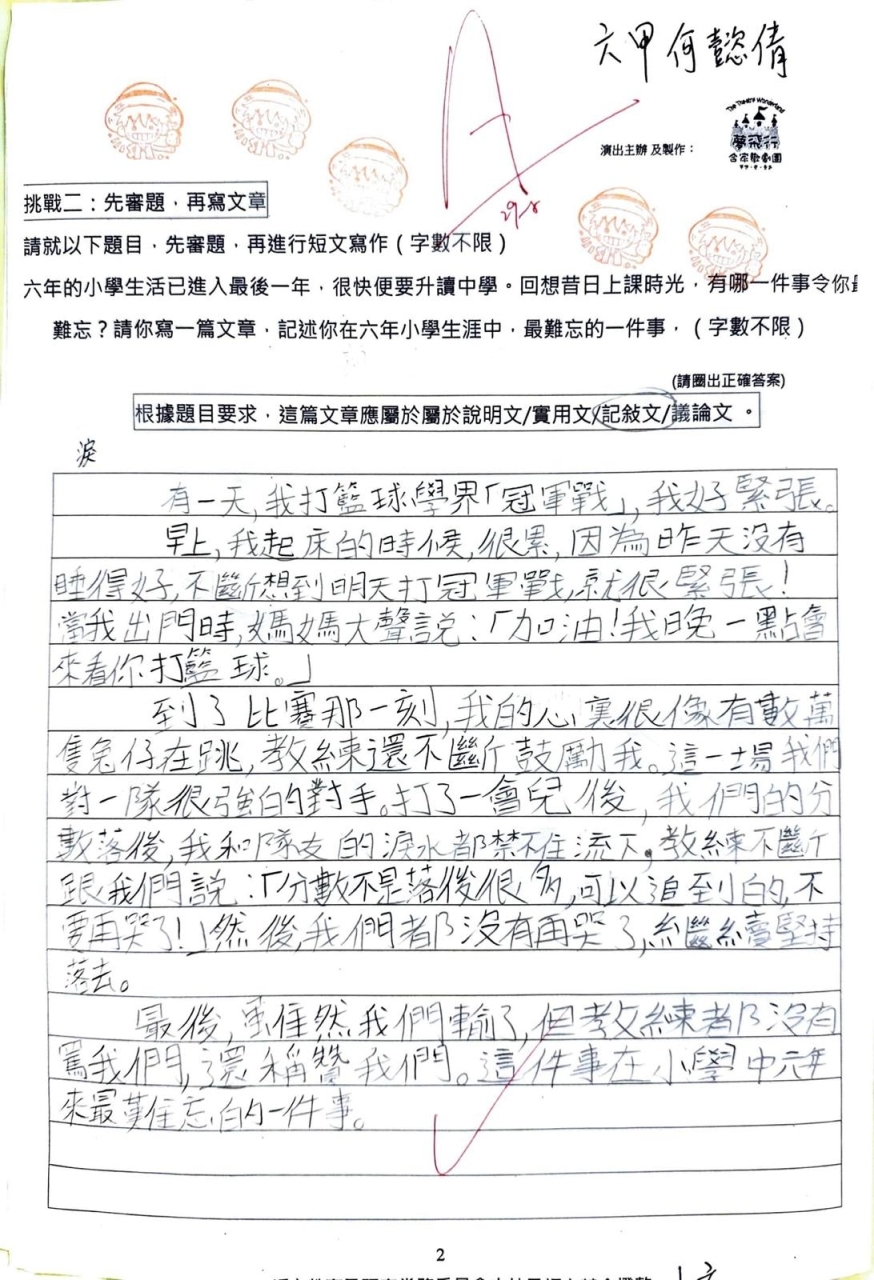 六甲 何懿倩
A
29-8
The Theatre Wonderland
夢飛行
合家歡劇團
演出主辦及製作：
挑戰二：先審題，再寫文章
請就以下題目，先審題，再進行短文寫作（字數不限）
六年的小學生活已進入最後一年，很快便要升讀中學。回想昔日上課時光，有哪一件事令你最
難忘？請你寫一篇文章，記述你在六年小學生涯中，最難忘的一件事，（字數不限）
(請圈出正確答案)
根據題目要求，這篇文章應屬於屬於說明文/實用文/記敍文/議論文 。
淚
有一天,我打籃球學界「冠軍戰」,我好緊張。
早上,我起床的時候,很累,因為昨天沒有
睡得好,不斷想到明天打冠軍戰,就很緊張!
當我出門時,媽媽大聲説:「加油!我晚一點會
來看你打籃球。」
到了比賽那一刻,我的心裏很像有數萬
隻兔仔在跳,教練還不斷鼓勵我。這一場我們
對一隊很強的對手。打了一會兒後,我們的分
數落後,我和隊友的淚水都禁不住流下,教練不斷
跟我們説:「分數不是落後很多,可以追到的,不
要再哭了!」然後,我們都沒有再哭了,繼續堅持
落去。
最後,雖然我們輸了,但教練都沒有
罵我們,還稱讚我們。這件事在小學中六年
來最難忘的一件事。
2